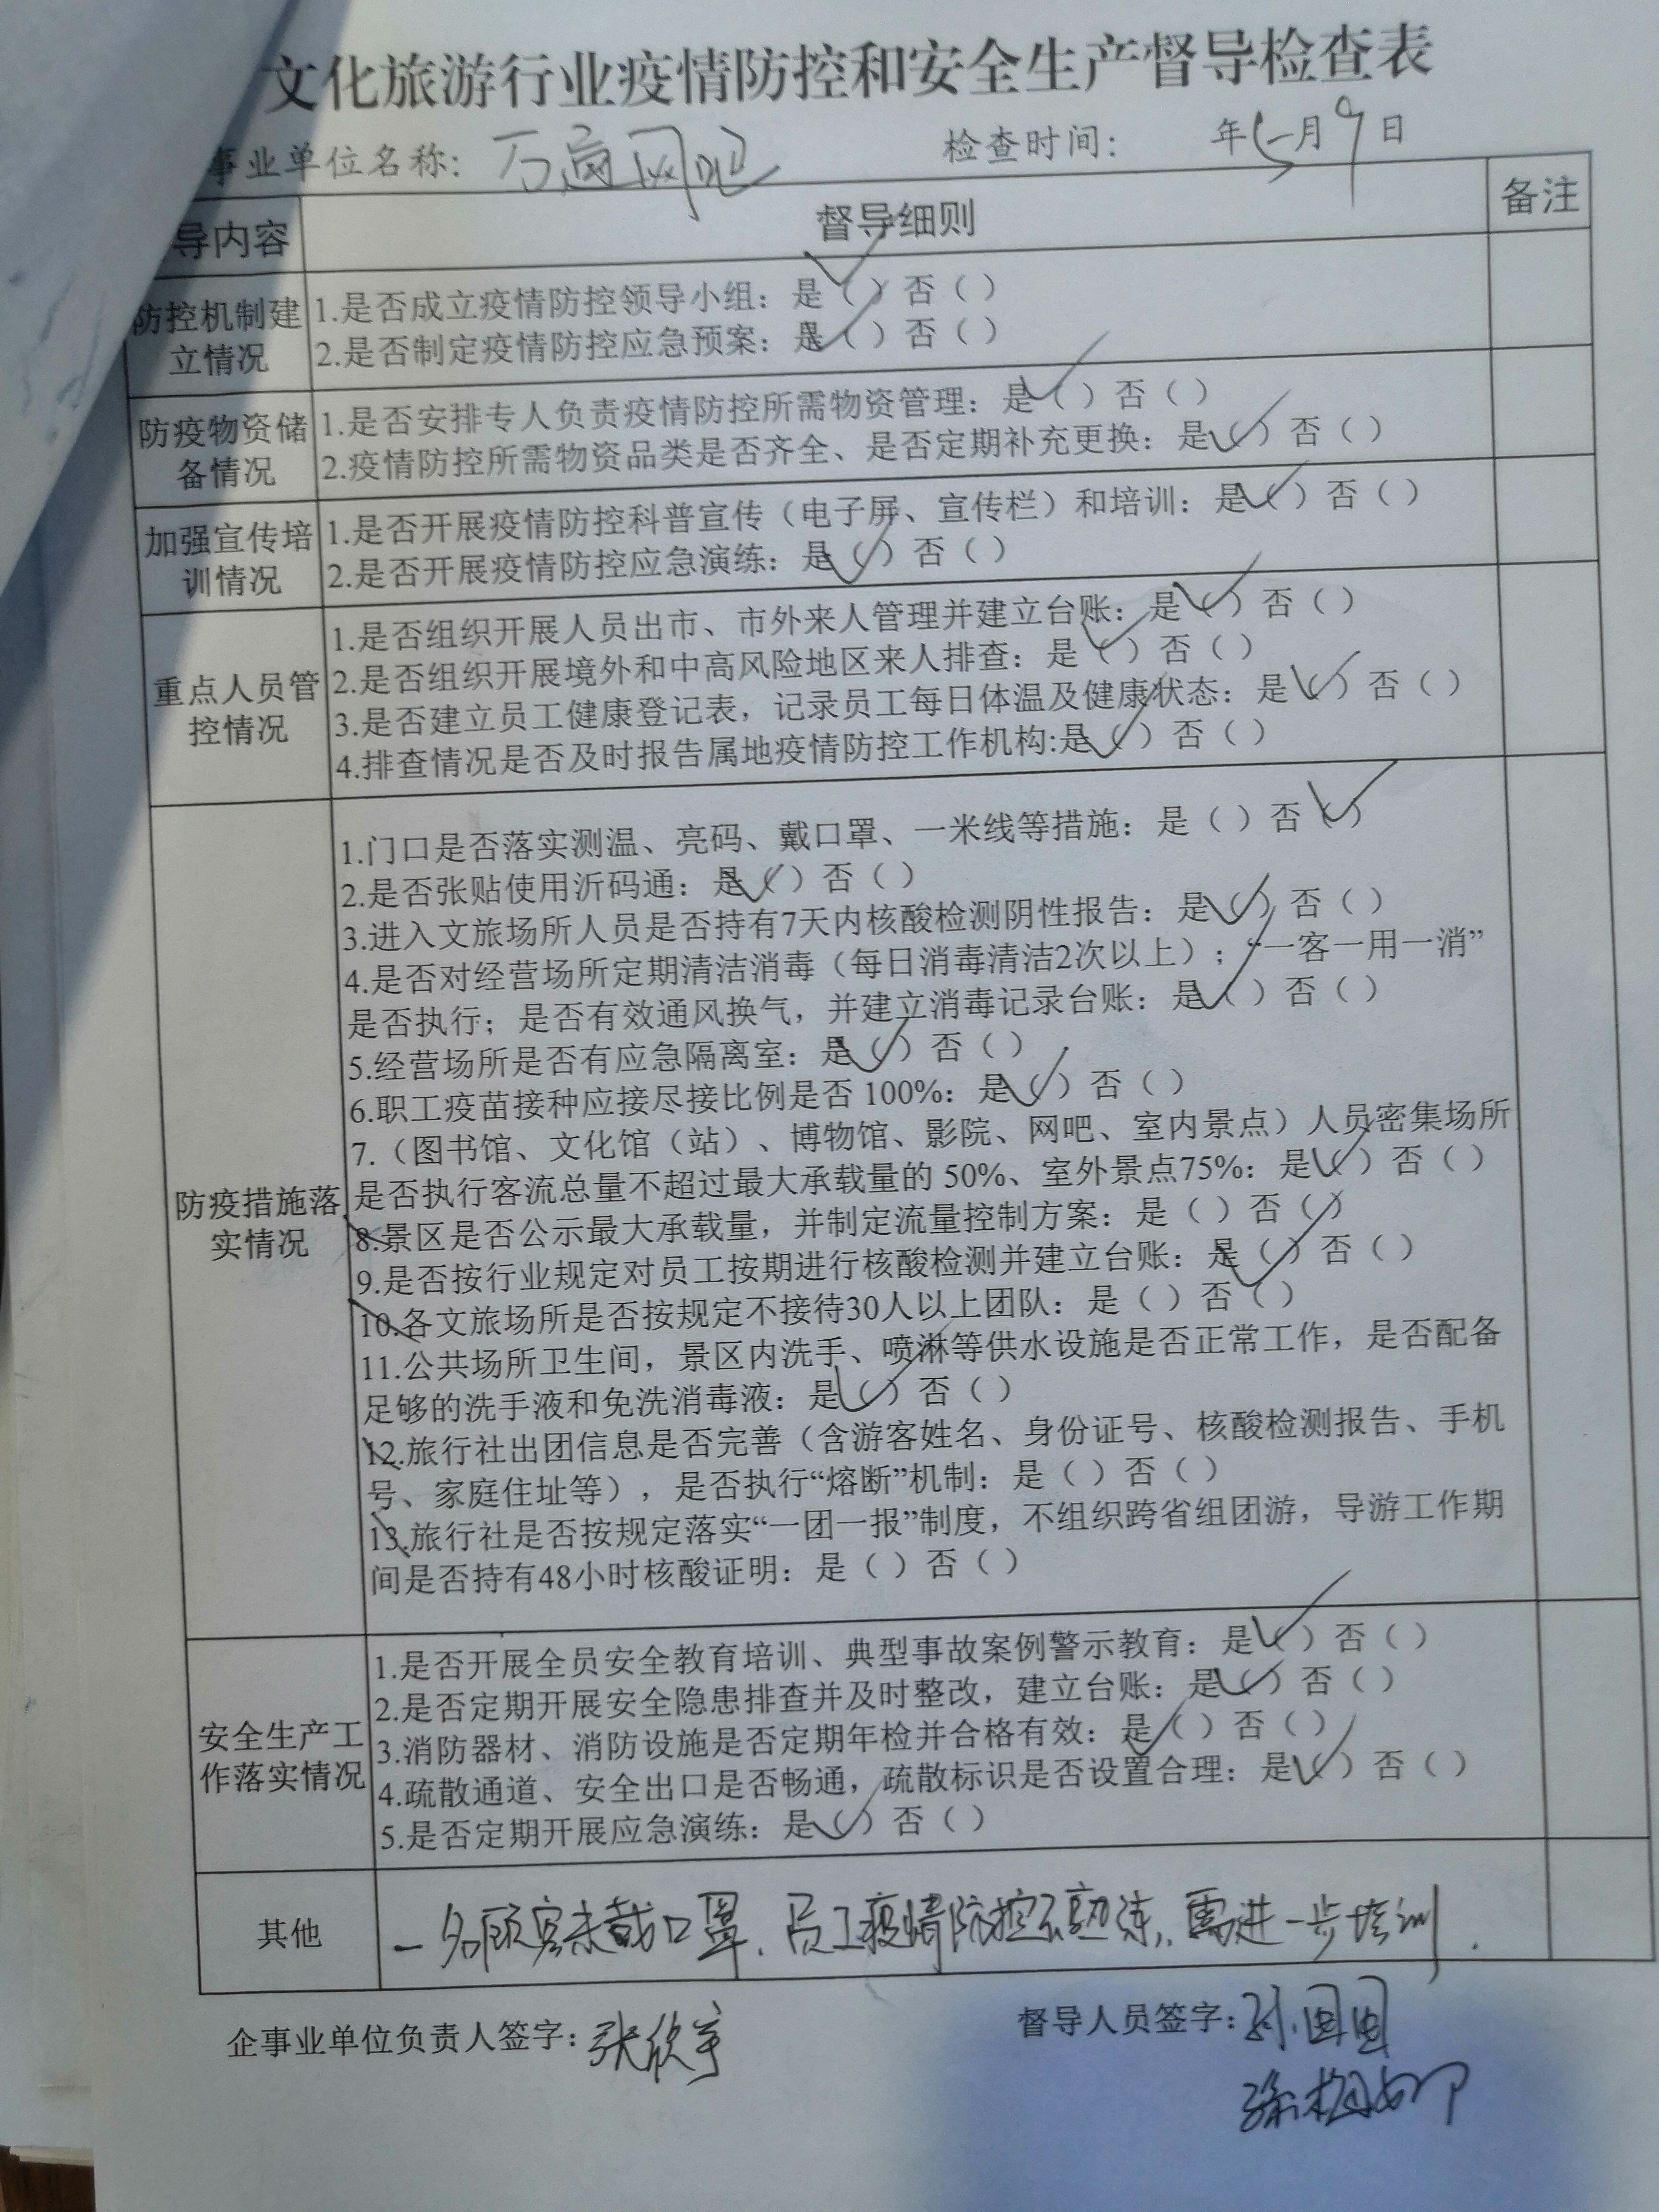 文化旅游行业疫情防控和安全生产督导检查表
事业单位名称：万通网吧 检查时间： 年 月9日
导内容 督导细则 备注
防控机制建
立情况
1.是否成立疫情防控领导小组：是（✓）否（）
2.是否制定疫情防控应急预案：是（✓）否（）
防疫物资储
备情况
1.是否安排专人负责疫情防控所需物资管理：是（✓）否（）
2.疫情防控所需物资品类是否齐全、是否定期补充更换：是（✓）否（）
加强宣传培
训情况
1.是否开展疫情防控科普宣传（电子屏、宣传栏）和培训：是（✓）否（）
2.是否开展疫情防控应急演练：是（✓）否（）
重点人员管
控情况
1.是否组织开展人员出市、市外来人管理并建立台账：是（✓）否（）
2.是否组织开展境外和中高风险地区来人排查：是（✓）否（）
3.是否建立员工健康登记表，记录员工每日体温及健康状态：是（✓）否（）
4.排查情况是否及时报告属地疫情防控工作机构:是（✓）否（）
防疫措施落
实情况
1.门口是否落实测温、亮码、戴口罩、一米线等措施：是（）否（✓）
2.是否张贴使用沂码通：是（✓）否（）
3.进入文旅场所人员是否持有7天内核酸检测阴性报告：是（✓）否（）
4.是否对经营场所定期清洁消毒（每日消毒清洁2次以上）；“一客一用一消”
是否执行；是否有效通风换气，并建立消毒记录台账：是（✓）否（）
5.经营场所是否有应急隔离室：是（✓）否（）
6.职工疫苗接种应接尽接比例是否 100%：是（✓）否（）
7.（图书馆、文化馆（站）、博物馆、影院、网吧、室内景点）人员密集场所
是否执行客流总量不超过最大承载量的 50%、室外景点75%：是（✓）否（）
8.景区是否公示最大承载量，并制定流量控制方案：是（）否（）
9.是否按行业规定对员工按期进行核酸检测并建立台账：是（✓）否（）
10.各文旅场所是否按规定不接待30人以上团队：是（）否（）
11.公共场所卫生间，景区内洗手、喷淋等供水设施是否正常工作，是否配备
足够的洗手液和免洗消毒液：是（✓）否（）
12.旅行社出团信息是否完善（含游客姓名、身份证号、核酸检测报告、手机
号、家庭住址等），是否执行“熔断”机制：是（）否（）
13.旅行社是否按规定落实“一团一报”制度，不组织跨省组团游，导游工作期
间是否持有48小时核酸证明：是（）否（）
安全生产工
作落实情况
1.是否开展全员安全教育培训、典型事故案例警示教育：是（✓）否（）
2.是否定期开展安全隐患排查并及时整改，建立台账：是（✓）否（）
3.消防器材、消防设施是否定期年检并合格有效：是（✓）否（）
4.疏散通道、安全出口是否畅通，疏散标识是否设置合理：是（✓）否（）
5.是否定期开展应急演练：是（✓）否（）
其他
一名顾客未戴口罩、员工疫情防控不熟练，需进一步培训．
企事业单位负责人签字：张欣宇 督导人员签字：